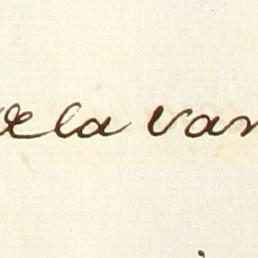 de la van